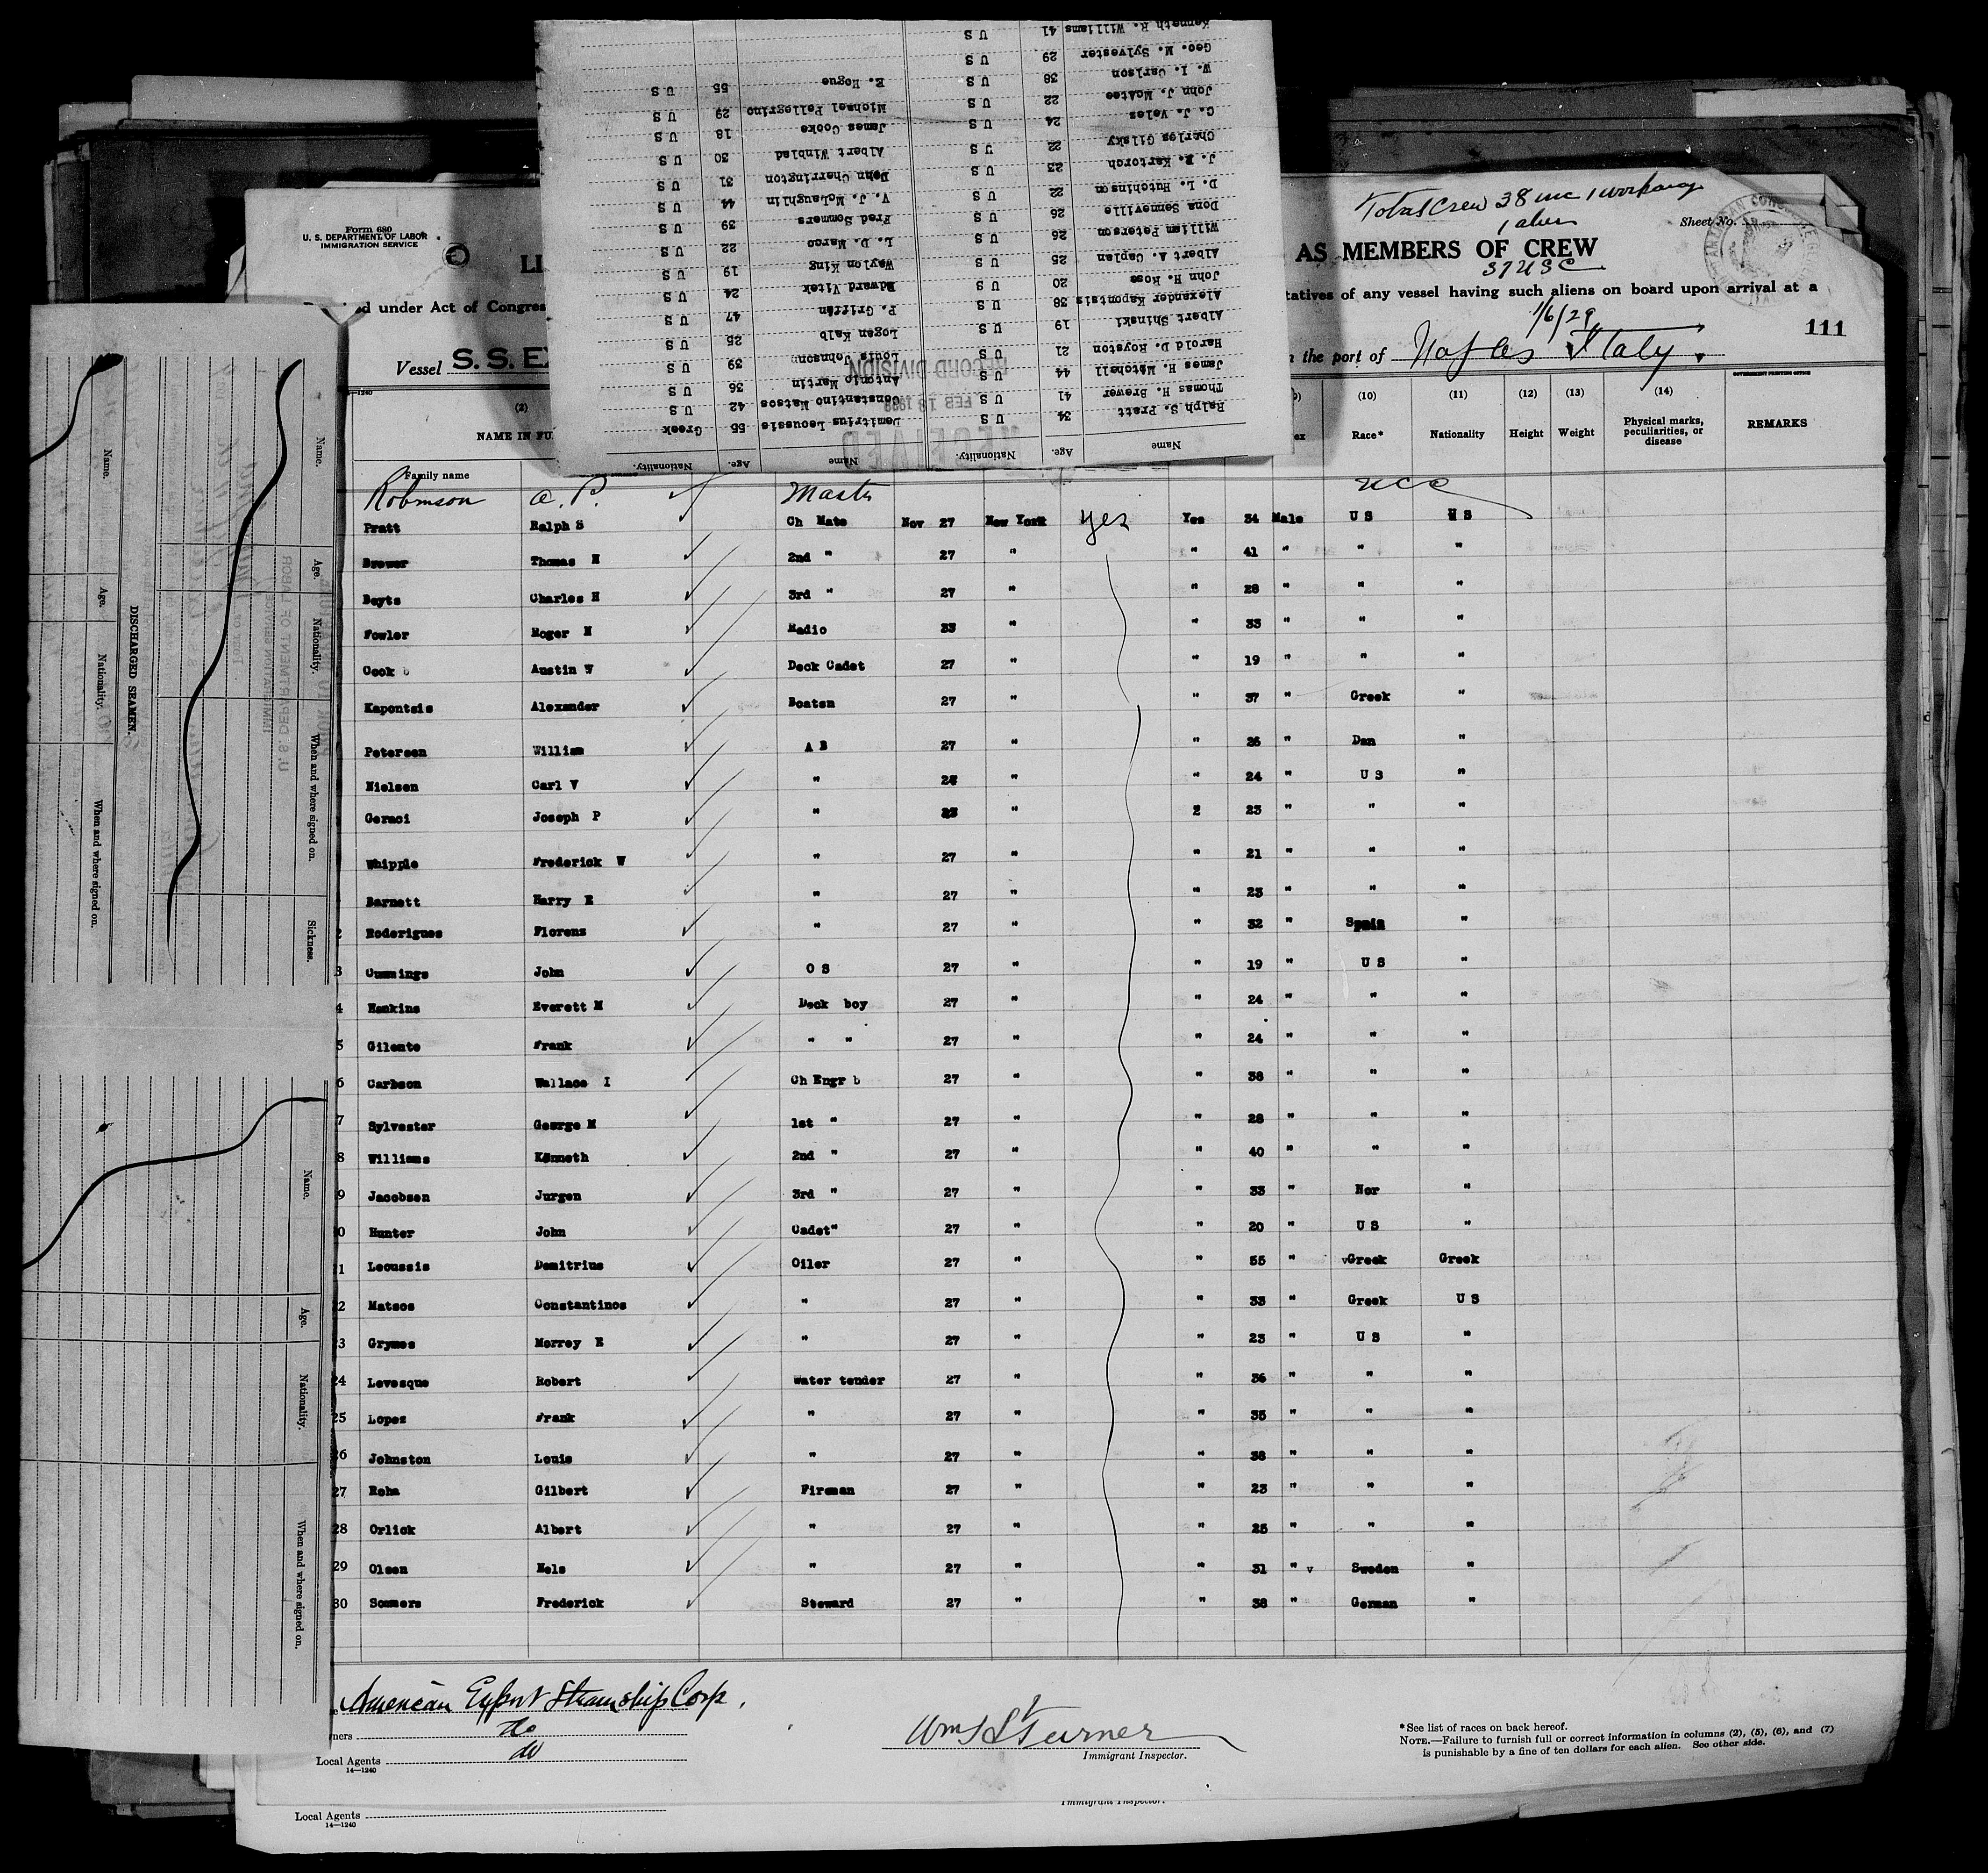 Kenneth R. Williams 41 U S
Geo. M. Sylvester 29 U S
W. I. Carlson 38 U S E. Hogue 55 U S
John J. McAtee 22 U S Michael Pellegrino 29 U S
C. J. Veles 24 U S James Cooke 18 U S
Charles Gilsky 22 U S Albert Winblad 30 U S
J. F. Kertoroh 23 U S John Charrington 31 U S
D. L. Hutchinson 22 U S V. J. McLaughlin 44 U S
Dona Senneville 26 U S Fred Sommers 39 U S
William Peterson 26 U S L. D. Marco 22 U S
Albert A. Caplan 25 U S Waylon King 19 U S
John H. Rose 20 U S Edward Vitek 24 U S
Alexander Kapontsis 38 U S P. Griffin 47 U S
Albert Shinski 19 U S Logan Kalb 25 U S
Harold D. Royston 21 U S Louis Johnson 39 U S
James H. Matchell 44 U S Antonio Martin 36 U S
Thomas H. Brewer 41 U S Constantino Matsos 42 U S
Ralph S. Pratt 34 U S Demitrius Leoussis 55 Greek
Name Age. Nationality. Name Age. Nationality.
RECORD DIVISION
FEB 18
RECEIVED
Form 680
U. S. DEPARTMENT OF LABOR
IMMIGRATION SERVICE
Total Crew 38 inc 1 workaway
1 alien
Sheet No.
LI
AS MEMBERS OF CREW
37 USC
d under Act of Congres
tatives of any vessel having such aliens on board upon arrival at a
1/6/29
111
Vessel S. S. EX
the port of Naples Italy.
14—1240
(2) (10) (11) (12) (13) (14)
NAME IN FU
Race* Nationality Height Weight Physical marks, peculiarities, or disease REMARKS
GOVERNMENT PRINTING OFFICE
Family name
Robinson A. P. Master USC
Pratt Ralph S Ch Mate Nov 27 New York yes Yes 34 Male U S U S
Brewer Thomas H 2nd " 27 " " 41 " " "
Beyts Charles H 3rd " 27 " " 28 " " "
Fowler Roger H Radio 33 " " 33 " " "
Cook b Austin W Deck Cadet 27 " " 19 " " "
Kapontsis Alexander Boatsn 27 " " 37 " Greek "
Petersen William A B 27 " " 26 " Dan "
Nielsen Carl V " 24 " " 24 " U S "
Geraci Joseph P " " 2 23 " " "
Whipple Frederick W " 27 " " 21 " " "
Barnett Harry E " 27 " " 23 " " "
2 Roderigues Florenz " 27 " " 32 " Spain "
3 Cummings John O S 27 " " 19 " U S "
4 Hankins Everett M Deck boy 27 " " 24 " " "
5 Gilente Frank " " 27 " " 24 " " "
6 Carbson Wallace I Ch Engr b 27 " " 38 " " "
7 Sylvester George M 1st " 27 " " 28 " " "
8 Williams Kenneth 2nd " 27 " " 40 " " "
9 Jacobsen Jurgen 3rd " 27 " " 33 " Nor "
0 Hunter John Cadet" 27 " " 20 " U S "
1 Leoussis Demitrius Oiler 27 " " 55 " vGreek Greek
2 Matsos Constantinos " 27 " " 33 " Greek U S
3 Grymes Morrey E " 27 " " 23 " U S "
24 Levesque Robert Water tender 27 " " 36 " " "
25 Lopez Frank " 27 " " 35 " " "
26 Johnston Louis " 27 " " 38 " " "
27 Reha Gilbert Fireman 27 " " 23 " " "
28 Orlick Albert " 27 " " 25 " " "
29 Olsen Nels " 27 " " 31 " v Sweden "
30 Sommers Frederick Steward 27 " " 38 " German "
American Export Steamship Corp.
ners do
Local Agents do
14—1240
Wm S Turner
Immigrant Inspector.
* See list of races on back hereof.
NOTE.—Failure to furnish full or correct information in columns (2), (5), (6), and (7)
is punishable by a fine of ten dollars for each alien. See other side.
Local Agents
14—1240
Immigrant Inspector.
Name. Age. Nationality. When and where signed on. Sickness.
DISCHARGED SEAMEN.
Name. Age. Nationality. When and where signed on.
U. S. DEPARTMENT OF LABOR
IMMIGRATION SERVICE
Name. Age. Nationality. When and where signed on.